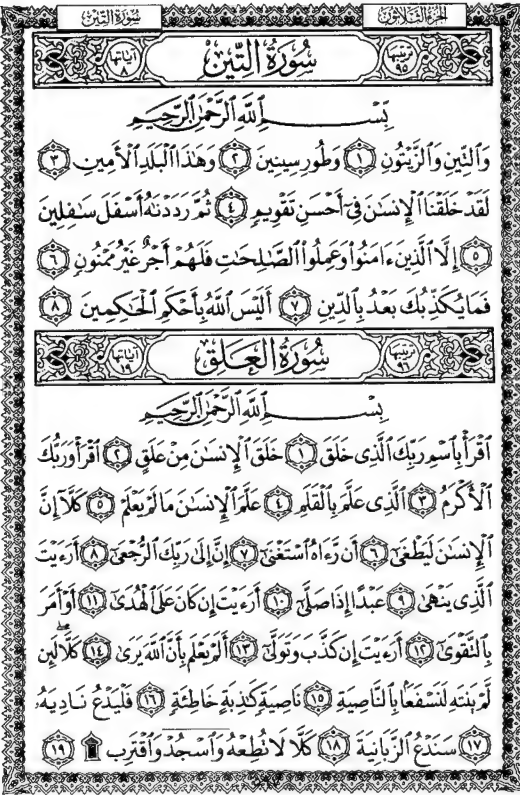 الجزء الثلاثون سورة التين
ترتيبها ٩٥ سُورَةُ التِّينِ آياتها ٨
بِسْمِ ٱللَّهِ ٱلرَّحْمَٰنِ ٱلرَّحِيمِ
وَٱلتِّينِ وَٱلزَّيْتُونِ ١ وَطُورِ سِينِينَ ٢ وَهَٰذَا ٱلْبَلَدِ ٱلْأَمِينِ ٣
لَقَدْ خَلَقْنَا ٱلْإِنسَٰنَ فِىٓ أَحْسَنِ تَقْوِيمٍ ٤ ثُمَّ رَدَدْنَٰهُ أَسْفَلَ سَٰفِلِينَ
٥ إِلَّا ٱلَّذِينَ ءَامَنُوا۟ وَعَمِلُوا۟ ٱلصَّٰلِحَٰتِ فَلَهُمْ أَجْرٌ غَيْرُ مَمْنُونٍ ٦
فَمَا يُكَذِّبُكَ بَعْدُ بِٱلدِّينِ ٧ أَلَيْسَ ٱللَّهُ بِأَحْكَمِ ٱلْحَٰكِمِينَ ٨
ترتيبها ٩٦ سُورَةُ العَلَقِ آياتها ١٩
بِسْمِ ٱللَّهِ ٱلرَّحْمَٰنِ ٱلرَّحِيمِ
ٱقْرَأْ بِٱسْمِ رَبِّكَ ٱلَّذِى خَلَقَ ١ خَلَقَ ٱلْإِنسَٰنَ مِنْ عَلَقٍ ٢ ٱقْرَأْ وَرَبُّكَ
ٱلْأَكْرَمُ ٣ ٱلَّذِى عَلَّمَ بِٱلْقَلَمِ ٤ عَلَّمَ ٱلْإِنسَٰنَ مَا لَمْ يَعْلَمْ ٥ كَلَّآ إِنَّ
ٱلْإِنسَٰنَ لَيَطْغَىٰٓ ٦ أَن رَّءَاهُ ٱسْتَغْنَىٰٓ ٧ إِنَّ إِلَىٰ رَبِّكَ ٱلرُّجْعَىٰٓ ٨ أَرَءَيْتَ
ٱلَّذِى يَنْهَىٰ ٩ عَبْدًا إِذَا صَلَّىٰٓ ١٠ أَرَءَيْتَ إِن كَانَ عَلَى ٱلْهُدَىٰٓ ١١ أَوْ أَمَرَ
بِٱلتَّقْوَىٰٓ ١٢ أَرَءَيْتَ إِن كَذَّبَ وَتَوَلَّىٰٓ ١٣ أَلَمْ يَعْلَم بِأَنَّ ٱللَّهَ يَرَىٰ ١٤ كَلَّا لَئِن
لَّمْ يَنتَهِ لَنَسْفَعًۢا بِٱلنَّاصِيَةِ ١٥ نَاصِيَةٍ كَٰذِبَةٍ خَاطِئَةٍ ١٦ فَلْيَدْعُ نَادِيَهُۥ
١٧ سَنَدْعُ ٱلزَّبَانِيَةَ ١٨ كَلَّا لَا تُطِعْهُ وَٱسْجُدْ وَٱقْتَرِب ۩ ١٩